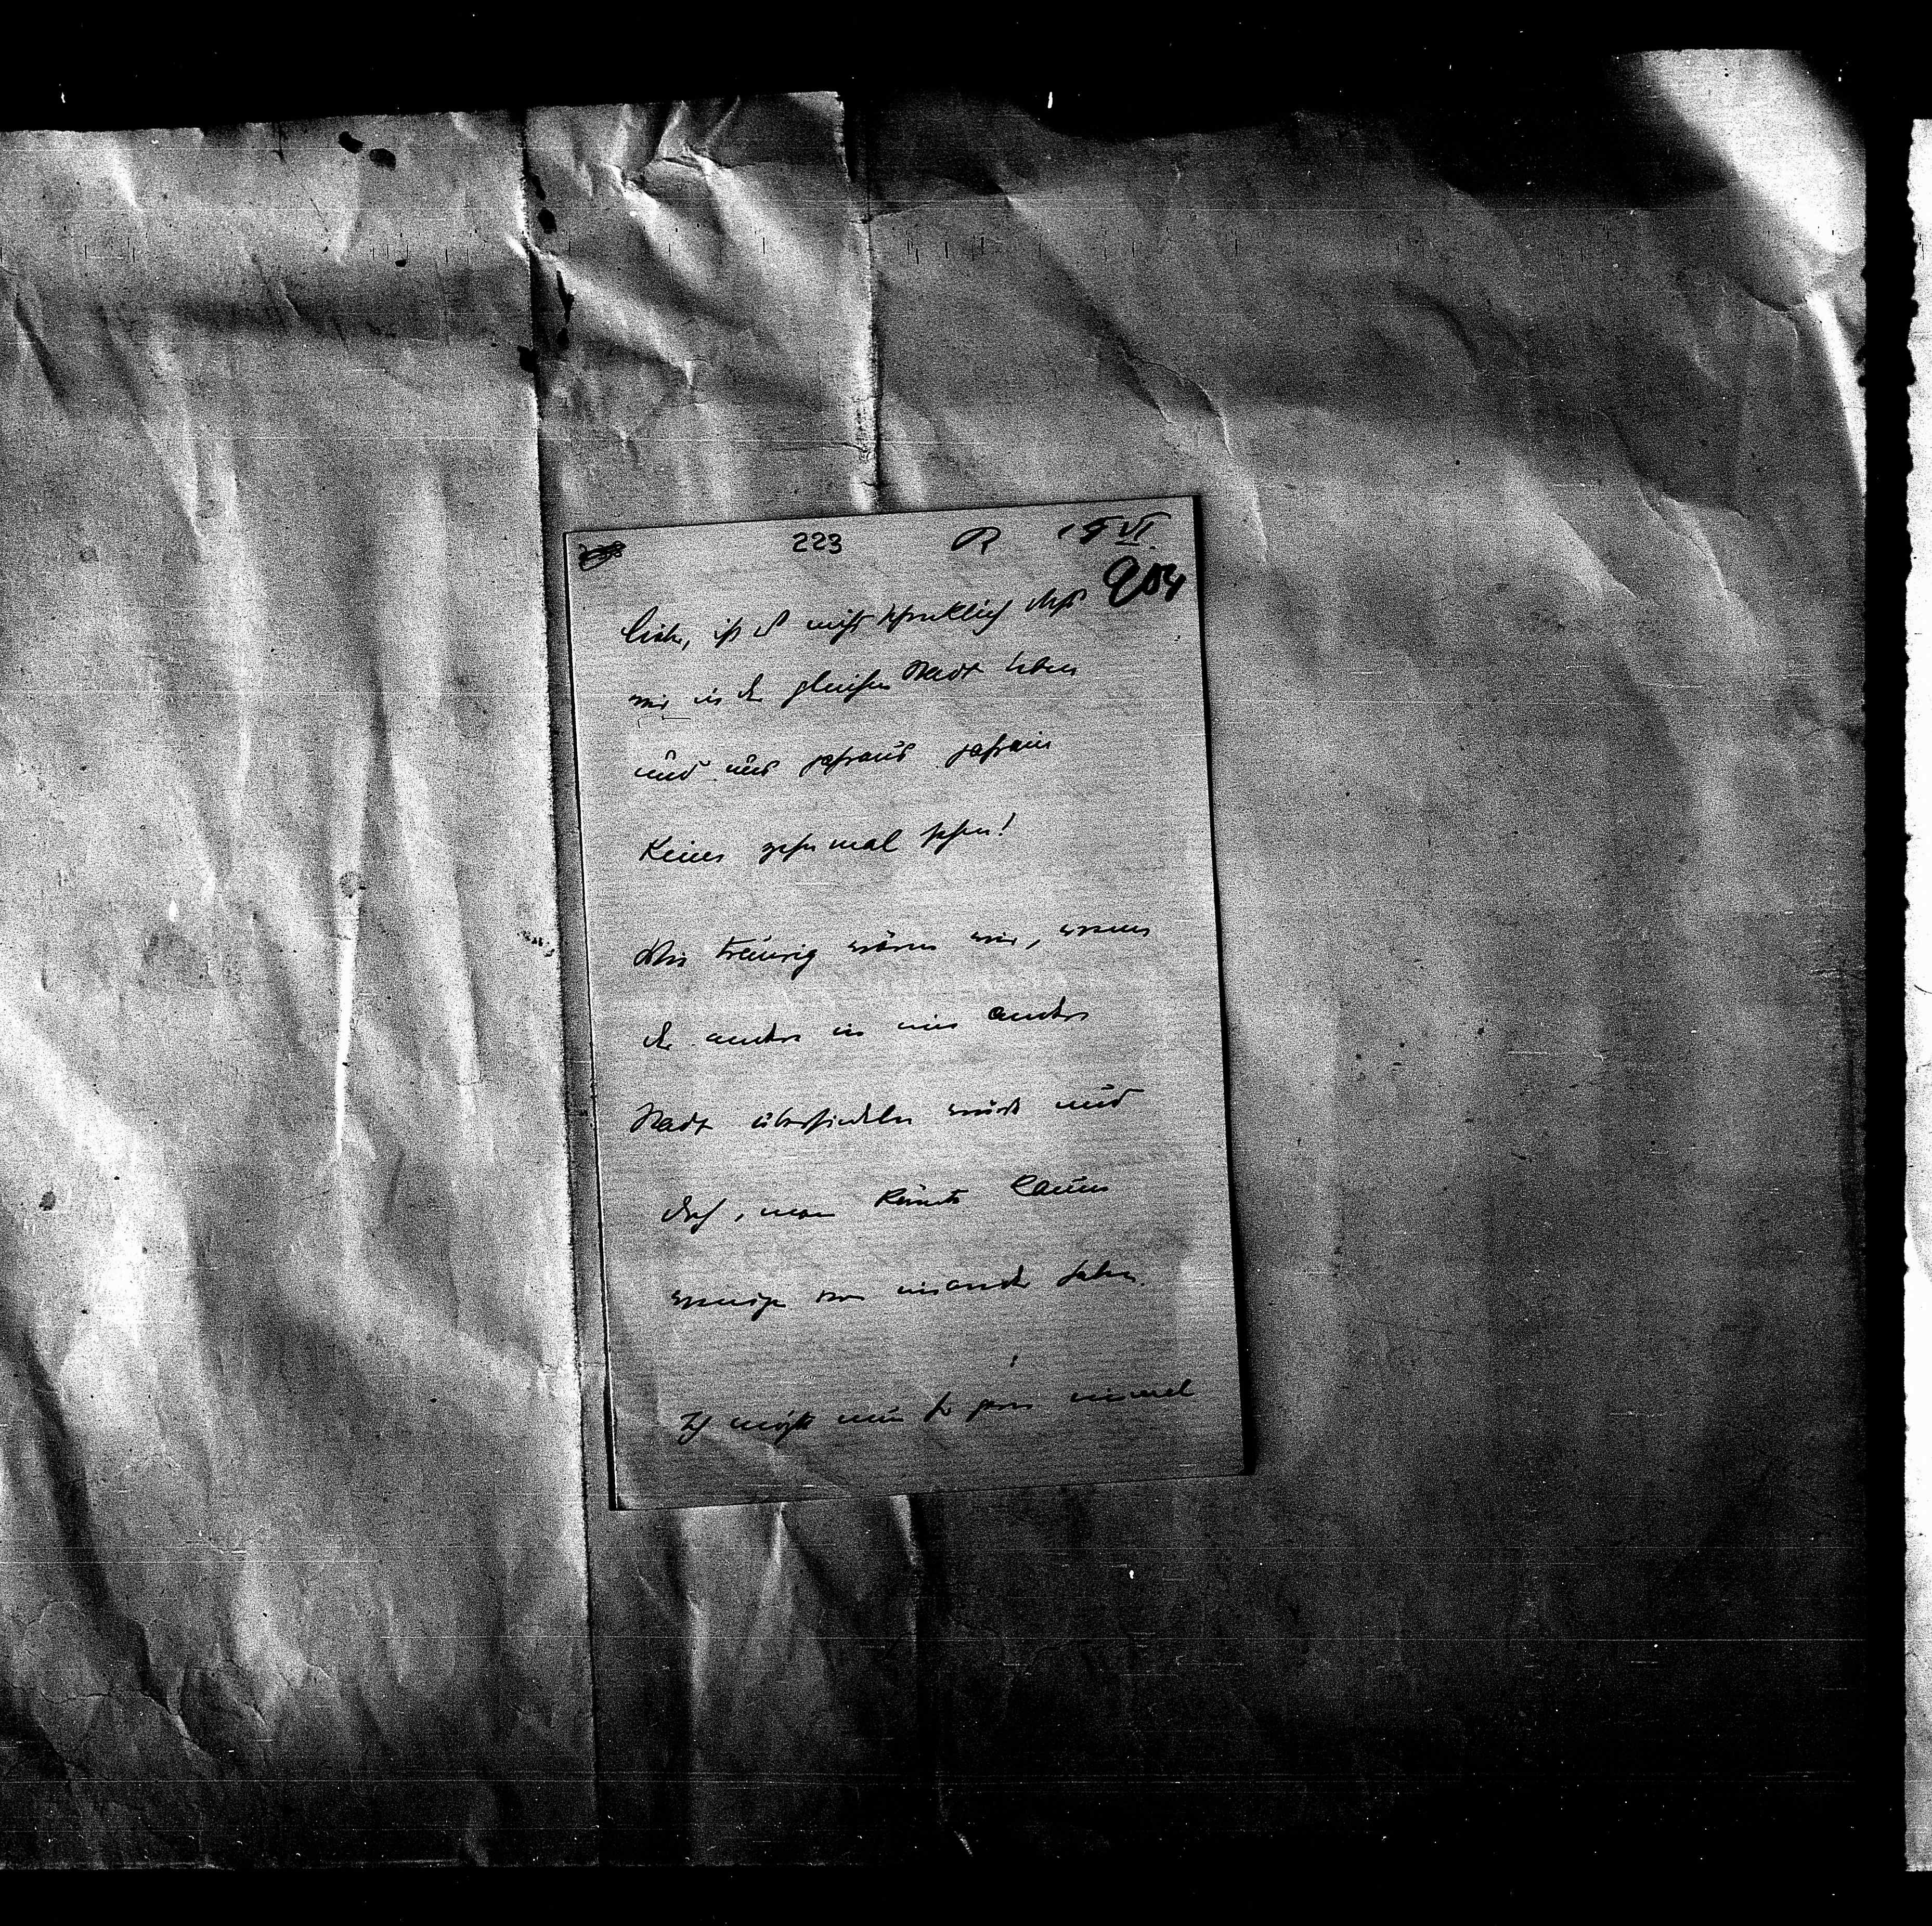 223 R 15 VI.
204
Liebe, ist es nicht schrecklich dass
wir in der gleichen Stadt leben
und uns jahraus jahrein
keine zehn mal sehen!
Wie traurig wären wir, wenn
der andre in eine andre
Stadt übersiedeln würde und
doch, man könnte kaum
weniger von einander haben.
Ich möchte nun so gern einmal